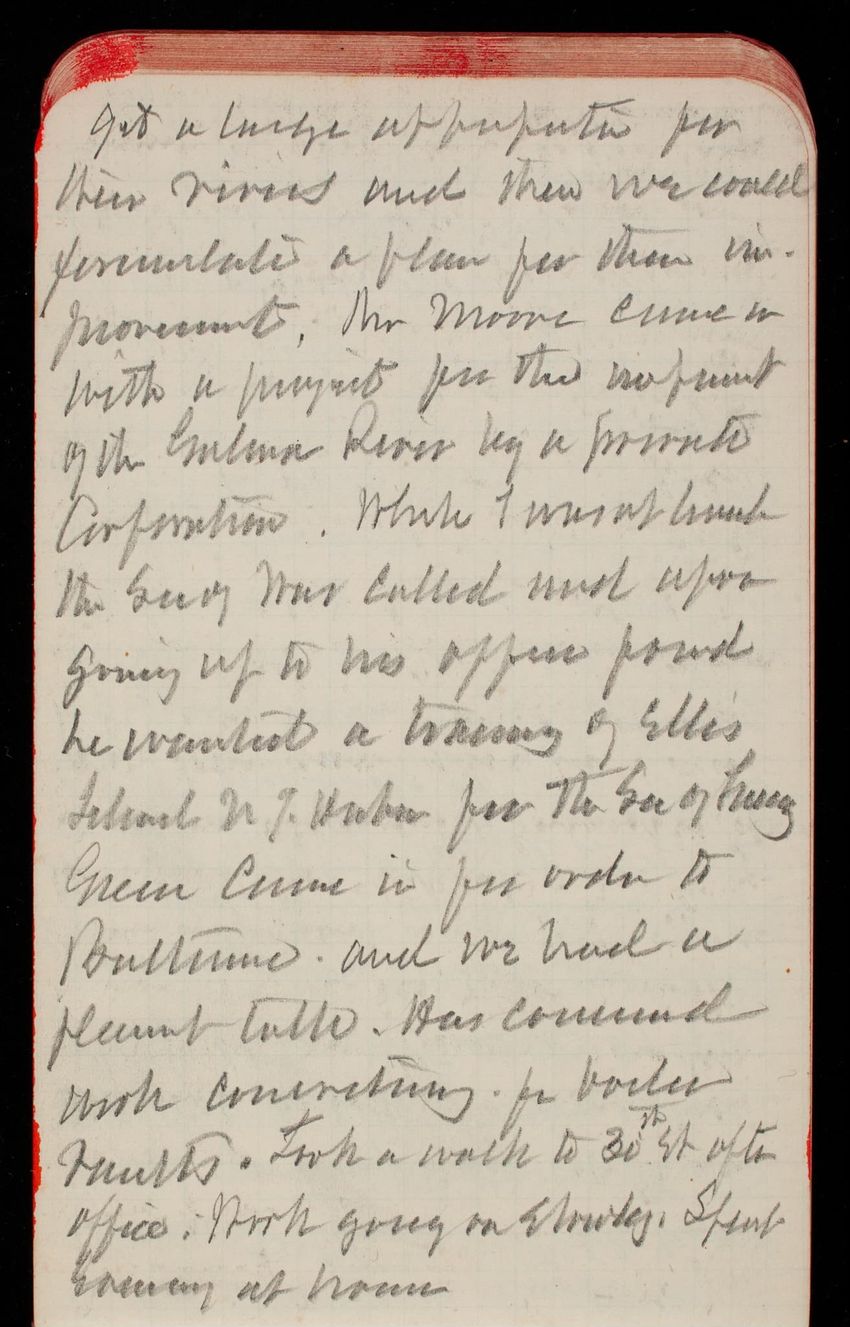 get a large appropriation for
their rivers and then we could
formulate a plan for their im-
provement. Mr Moore came in
with a project for the improvmt
of the River by a private
Corporation. While I was at lunch
the Secy War called and upon
going up to his office found
he wanted a tracing of Ellis
Island N.Y. Harbor for the Sec of Treasy
Green came in for order to
Baltimore. and we had a
pleasant talk. Has commenced
work concreting for boiler
vaults. Took a walk to 30th St after
office. Work going on slowly. Spent
evening at home